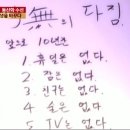 5無의 다짐
앞으로 10년간
1. 휴일은 없다.
2. 잠은 없다
3. 친구는 없다.
4. 술은 없다
5. TV는 없다.